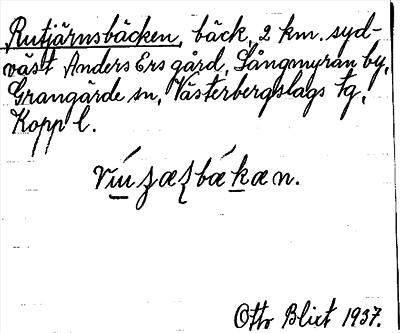 Rutjärnsbäcken, bäck, 2 km. syd-
väst Anders Ers gård, Långmyran by,
Grangärde sn, Västerbergslags tg,
Kopp l.
Otto Blixt 1937.